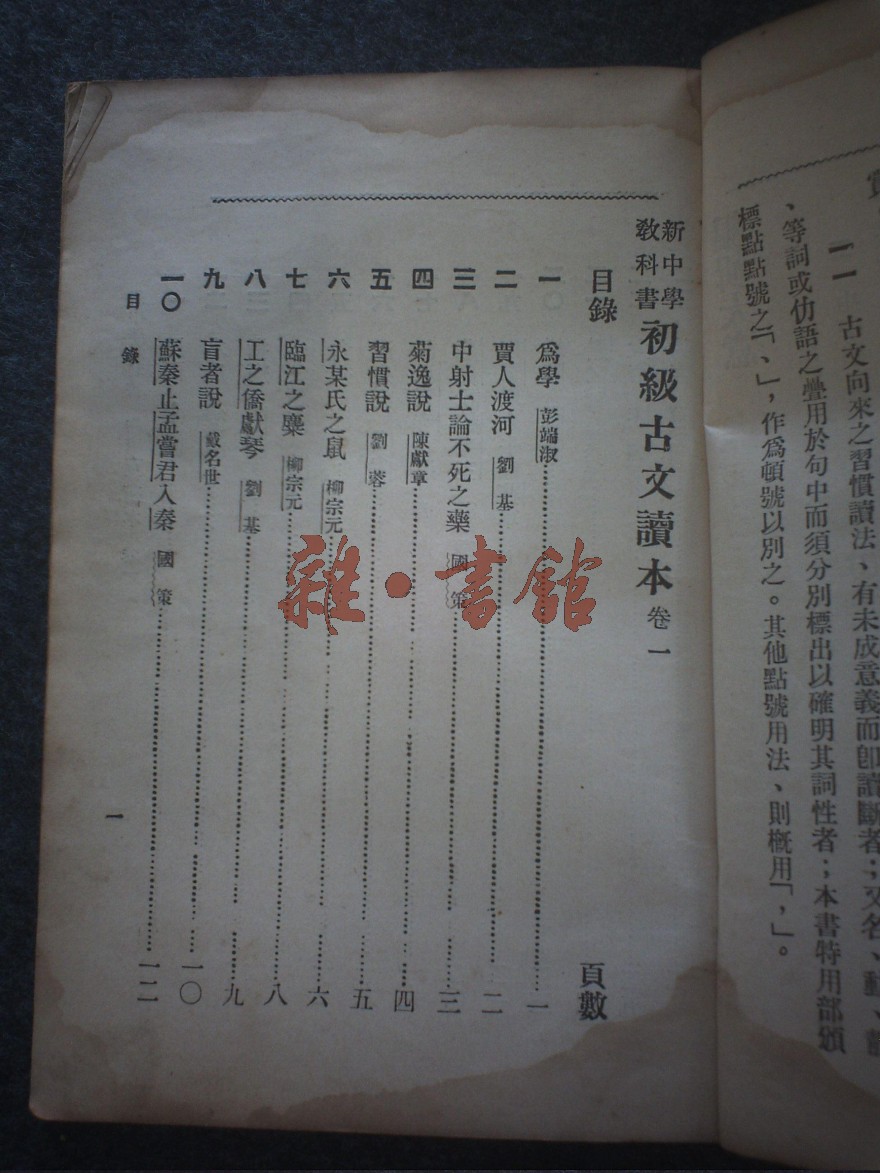 一一 古文向來之習慣讀法、有未成意義而卽讀斷者；又名、動、
、等詞或仂語之疊用於句中而須分別標出以確明其詞性者；本書特用部頒
標點點號之「、」，作爲頓號以別之。其他點號用法、則概用「，」。
新中學教科書 初級古文讀本 卷一
目錄 頁數
一 爲學 彭端淑 一
二 賈人渡河 劉基 二
三 中射士論不死之藥 國策 三
四 菊逸說 陳獻章 四
五 習慣說 劉蓉 五
六 永某氏之鼠 柳宗元 六
七 臨江之麋 柳宗元 八
八 工之僑獻琴 劉基 九
九 盲者說 戴名世 一〇
一〇 蘇秦止孟嘗君入秦 國策 一二
目錄
一
雜·書館